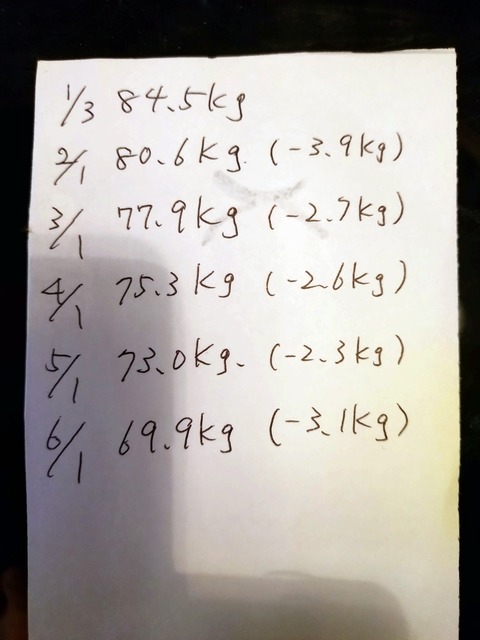 1/3 84.5kg
2/1 80.6kg. (-3.9kg)
3/1 77.9kg (-2.7kg)
4/1 75.3kg (-2.6kg)
5/1 73.0kg. (-2.3kg)
6/1 69.9kg (-3.1kg)